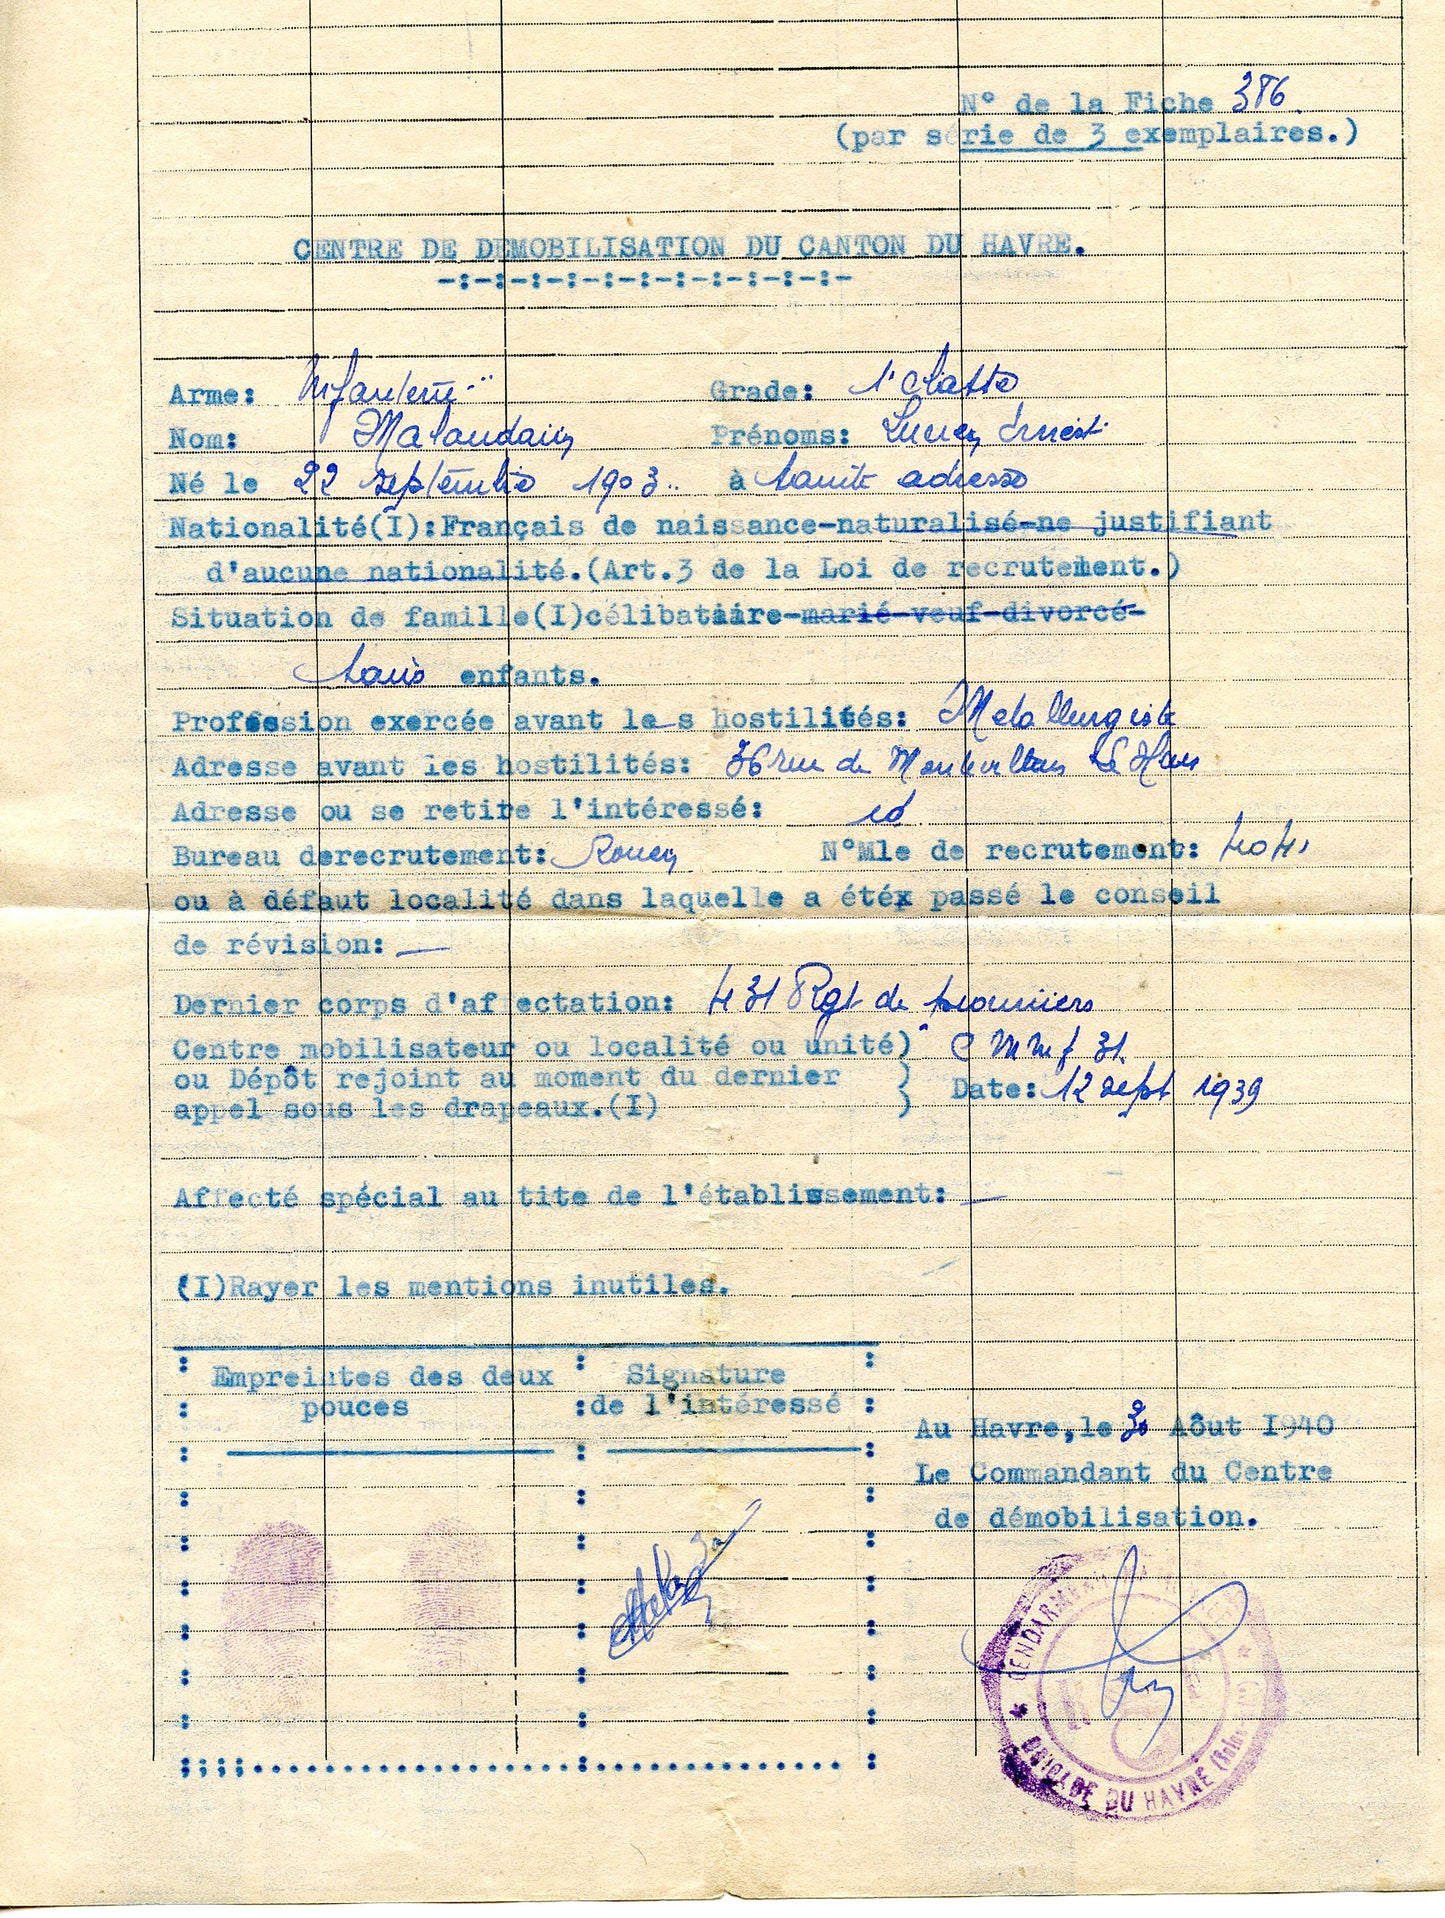 N° de la Fiche 386
(par série de 3 exemplaires.)
CENTRE DE DEMOBILISATION DU CANTON DU HAVRE.
-:-:-:-:-:-:-:-:-:-:-:-
Arme: Infanterie Grade: 1° Classe
Nom: Malandain Prénoms: Lucien Ernest
Né le 22 septembre 1903 à Sainte adresse
Nationalité(I):Français de naissance-naturalisé-ne justifiant
d'aucune nationalité.(Art.3 de la Loi de recrutement.)
Situation de famille(I)célibataire-marié-veuf-divorcé-
sans enfants.
Profession exercée avant les hostilités: Metallurgiste
Adresse avant les hostilités: 36 rue de Le Havre
Adresse ou se retire l'intéressé: id
Bureau derecrutement: Rouen N°Mle de recrutement: 404
ou à défaut localité dans laquelle a étéx passé le conseil
de révision: —
Dernier corps d'af ectation: 431 Rgt de pionniers
Centre mobilisateur ou localité ou unité) C M 31
ou Dépôt rejoint au moment du dernier )
appel sous les drapeaux.(I) ) Date: 12 sept 1939
Affecté spécial au tite de l'établissement: —
(I)Rayer les mentions inutiles.
Empreintes des deux pouces
Signature de l'intéressé
Au Havre, le 30 Aôut 1940
Le Commandant du Centre
de démobilisation.
GENDARMERIE
BRIGADE DU HAVRE